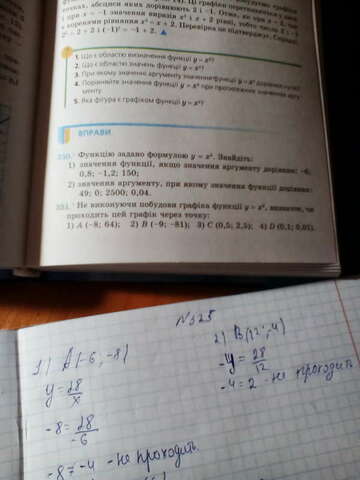 точках, абсциси яких дорівнюють 2 і -1.
при x = -1 значення виразів x² і x + 2 рівні, тобто числа 2 і -1
є коренями рівняння x² = x + 2. Перевірка це підтверджує. Справді,
2² = 2 + 2 і (-1)² = -1 + 2. ▲
1. Що є областю визначення функції y = x²?
2. Що є областю значень функції y = x²?
3. При якому значенні аргументу значення функції y = x² дорівнює нулю?
4. Порівняйте значення функції y = x² при протилежних значеннях аргу-
менту.
5. Яка фігура є графіком функції y = x²?
ВПРАВИ
350.° Функцію задано формулою y = x². Знайдіть:
1) значення функції, якщо значення аргументу дорівнює: -6;
0,8; -1,2; 150;
2) значення аргументу, при якому значення функції дорівнює:
49; 0; 2500; 0,04.
351.° Не виконуючи побудови графіка функції y = x², визначте, чи
проходить цей графік через точку:
1) A (-8; 64); 2) B (-9; -81); 3) C (0,5; 2,5); 4) D (0,1; 0,01).
№328
1) A(-6; -8)
y = 28/x
-8 = 28/-6
-8 ≠ -4 - не проходить
2) B(12; -4)
-y = 28/12
-4 = 2 - не проходить